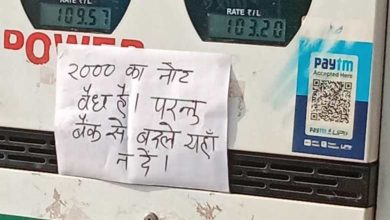 RATE ₹/L
109.57
RATE ₹/L
103.20
POWER
२००० का नोट
वैध है। परन्तु
बैंक से बदले यहाँ
न दे।
paytm
Accepted Here
paytm UPI